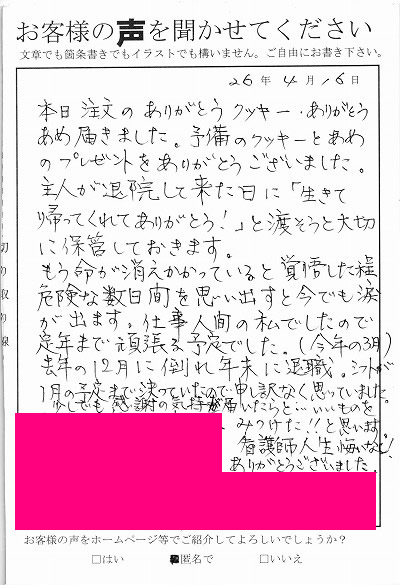 お客様の声を聞かせてください
文章でも箇条書きでもイラストでも構いません。ご自由にお書き下さい。
26年4月16日
本日注文のありがとうクッキー・ありがとう
あめ届きました。予備のクッキーとあめ
のプレゼントをありがとうございました。
主人が退院して来た日に「生きて
帰ってくれてありがとう！」と渡そうと大切
に保管しておきます。
もう命が消えかかっていると覚悟した程
危険な数日間を思い出すと今でも涙
が出ます。仕事人間の私でしたので
定年まで頑張る予定でした。(今年の3月)
去年の12月に倒れ年末に退職。シフトが
1月の予定まで決っていたので申し訳なく思っていました。
少しでも感謝の気持が届いたらと…いいものを
みつけた!!と思います。
看護師人生悔いなし!
ありがとうございました。
切り取り線
お客様の声をホームページ等でご紹介してよろしいでしょうか？
□はい ■匿名で □いいえ